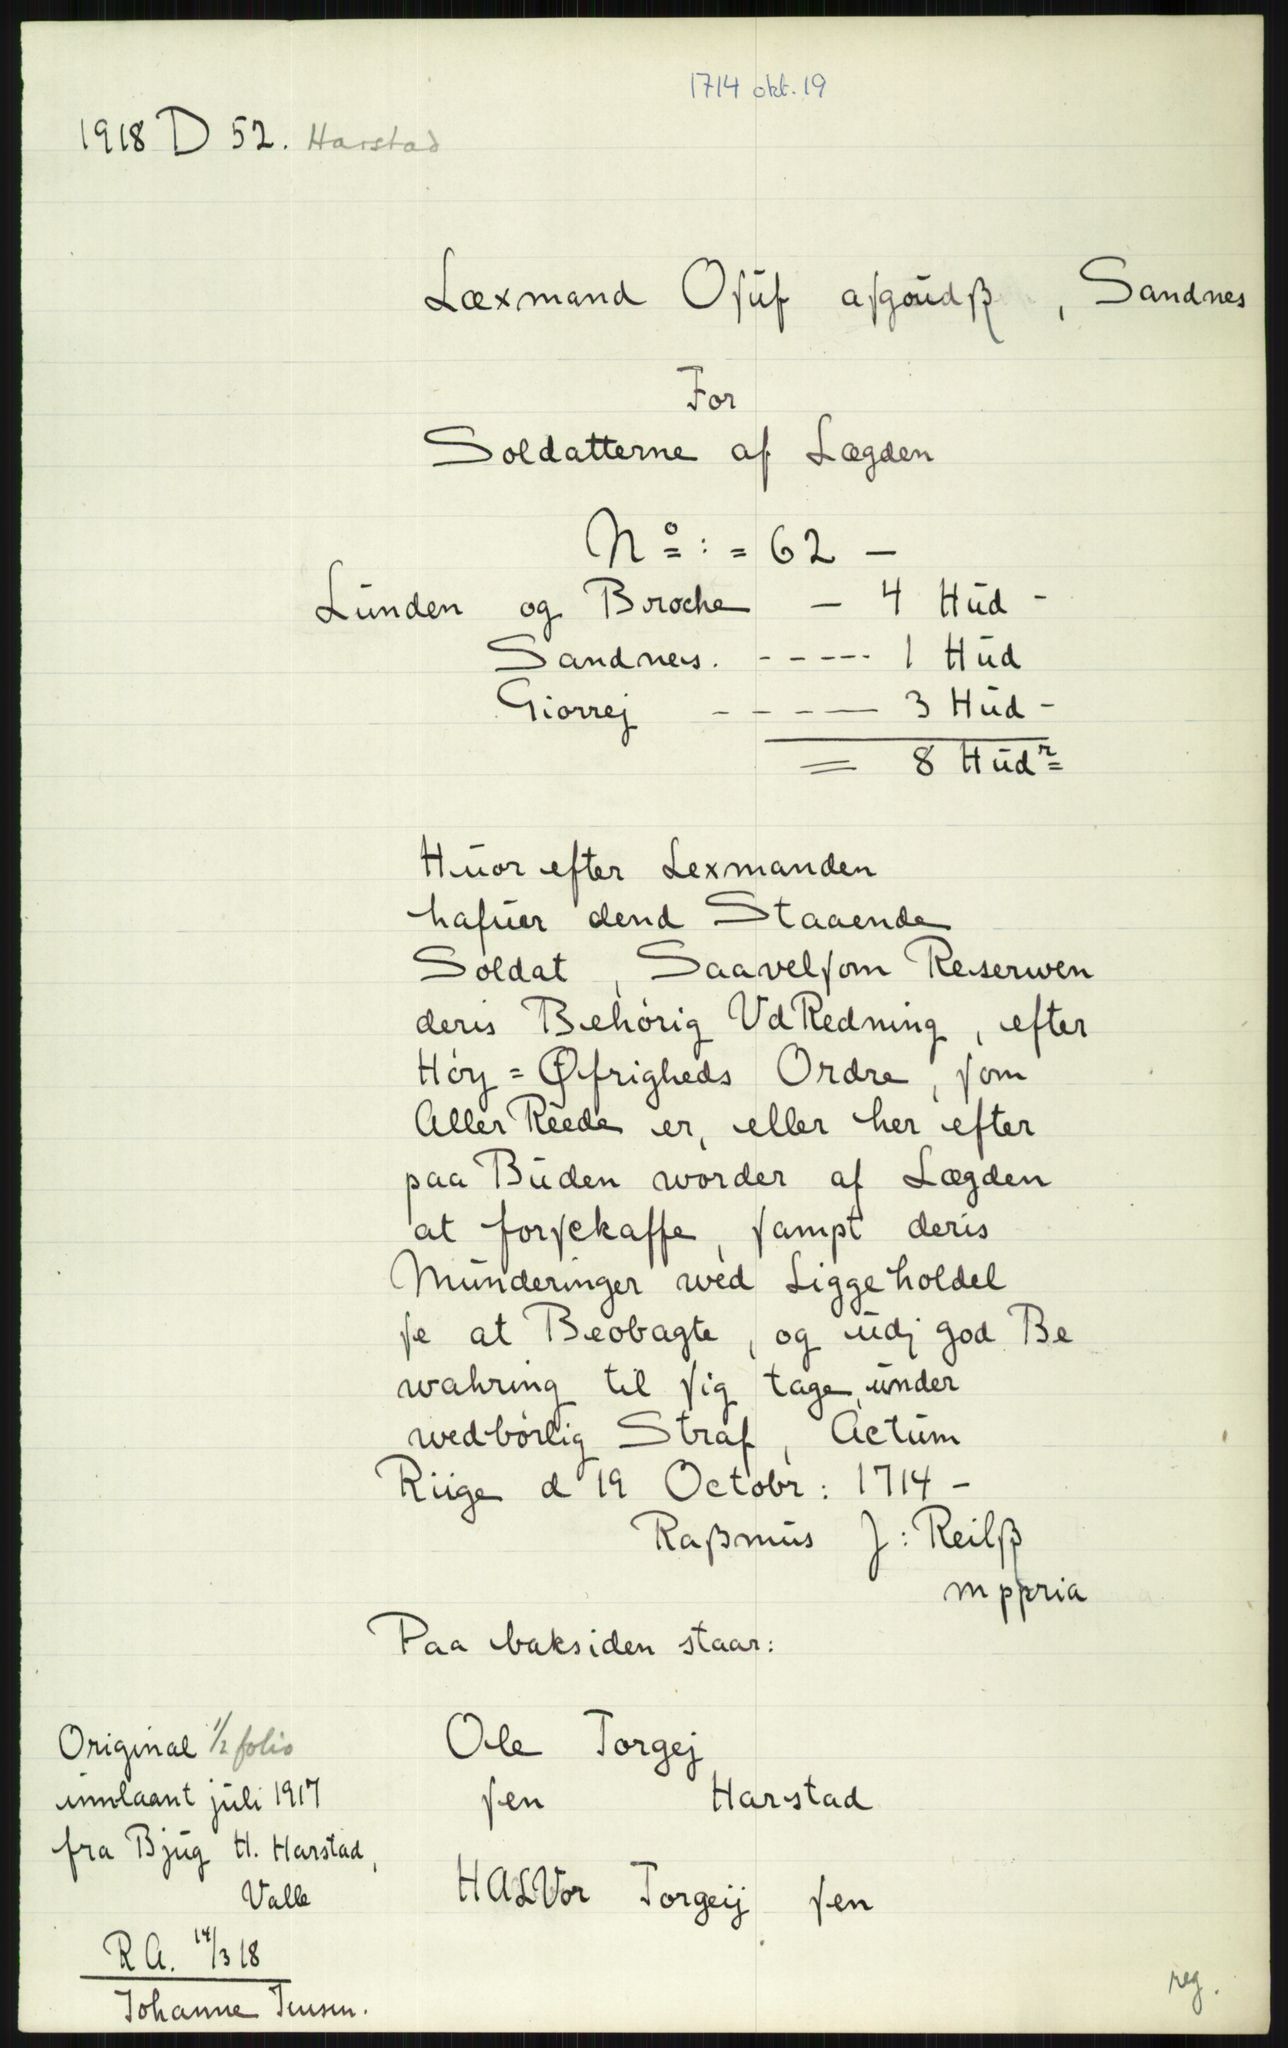 1714 okt. 19
1918 D 52. Harstad
Læxmand Ofüf afgoüdß , Sandnes
For
Soldatterne af Lægden
No := 62 —
Lünden og Broche — 4 Hüd -
Sandnes. ----- 1 Hüd
Giorrej ----— 3 Hüd -
= 8 Hüdr=
Hüor efter Lexmanden
hafüer dend Staaende
Soldat , Saavelsom Reserwen
deris Behörig VdRedning , efter
Höy = Øfrigheds Ordre , som
Aller Reede er, eller her efter
paa Büden worder af Lægden
at forsckaffe , sampt deris
Münderinger wed Liggeholdel
se at Beobagte , og üdj god Be
wahring til sig tage, ünder
wedbörlig Straf , Actüm
Riige d 19 Octobr : 1714 -
Raßmüs J : Reilß
mppria
Paa baksiden staar:
Ole Torgej
sen Harstad
HALVor Torgeij sen
Original 1/2 folio
innlaant jüli 1917
fra Bjüg H. Harstad,
Valle
R A. 14/3 18
Johanne Jensen.
reg.